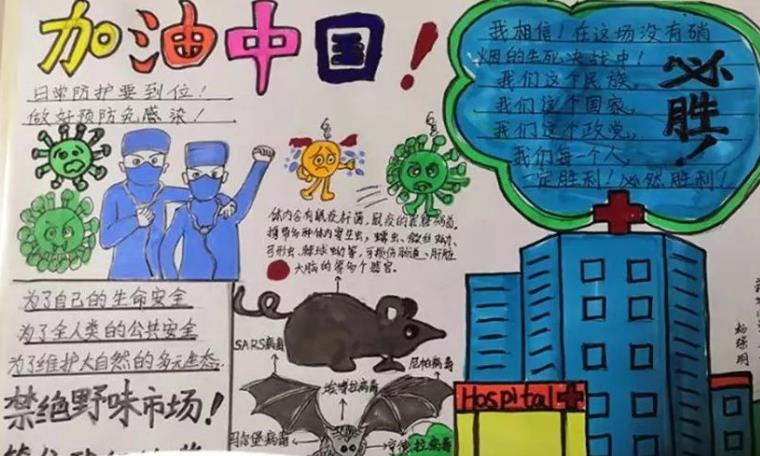 加油中国！
日常防护要到位！
做好预防免感染！
我相信！在这场没有硝
烟的生死决战中！
我们这个民族、
我们这个国家、
我们这个政党、
我们每一个人，
一定胜利！必然胜利！
必胜！
体内含有鼠疫杆菌，鼠疫的
弓形虫、
大脑的等多个器官。
为了自己的生命安全
为了全人类的公共安全
为了维护大自然的多元生态.
禁绝野味市场！
SARS病毒
尼帕病毒
埃博拉病毒
马尔堡病毒
亨德拉病毒
Hospital